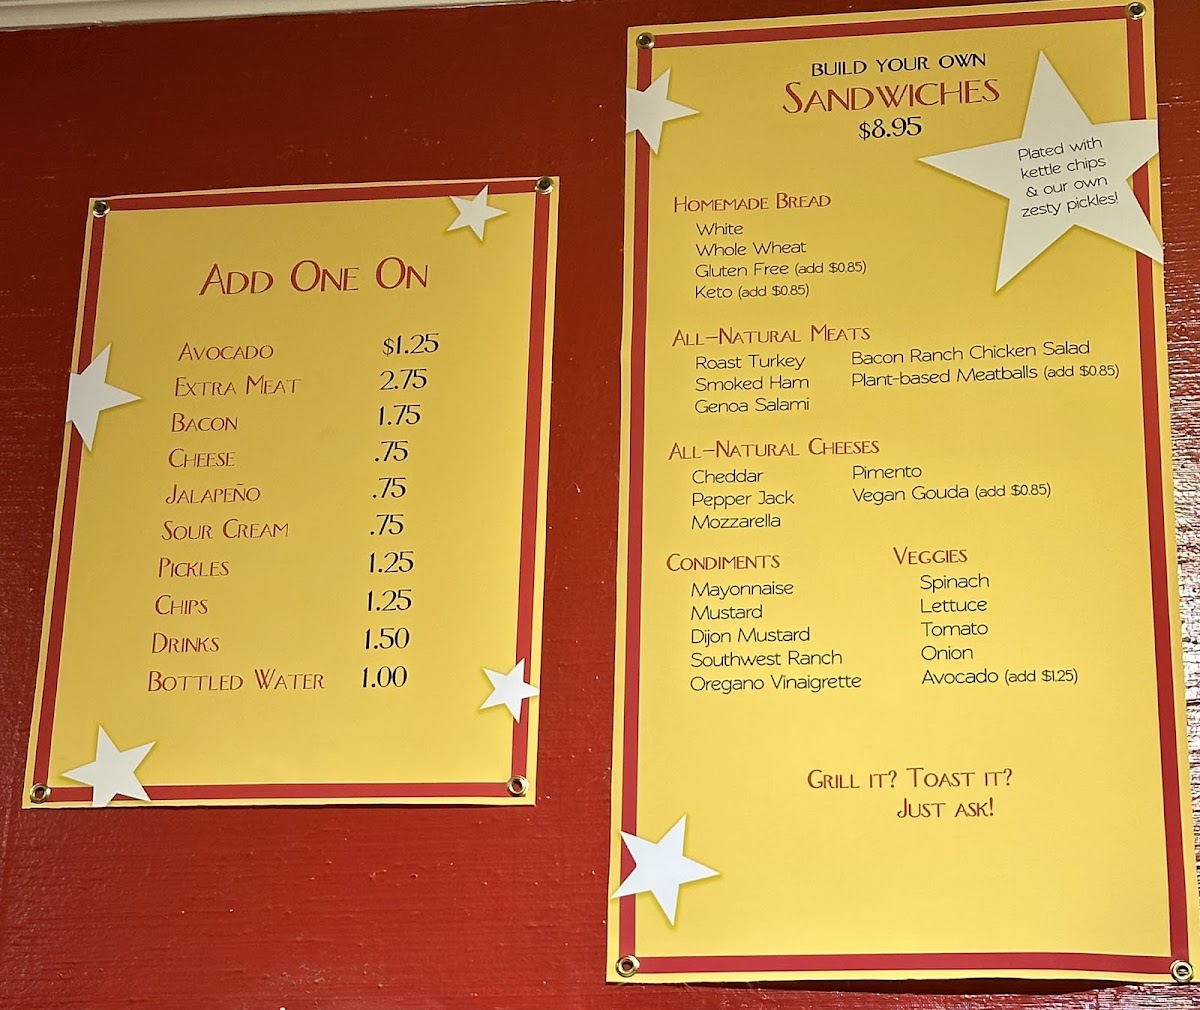 Add One On
Avocado $1.25
Extra Meat 2.75
Bacon 1.75
Cheese .75
Jalapeño .75
Sour Cream .75
Pickles 1.25
Chips 1.25
Drinks 1.50
Bottled Water 1.00
BUILD YOUR OWN
SANDWICHES
$8.95
Plated with
kettle chips
& our own
zesty pickles!
Homemade Bread
White
Whole Wheat
Gluten Free (add $0.85)
Keto (add $0.85)
All-Natural Meats
Roast Turkey
Smoked Ham
Genoa Salami
Bacon Ranch Chicken Salad
Plant-based Meatballs (add $0.85)
All-Natural Cheeses
Cheddar
Pepper Jack
Mozzarella
Pimento
Vegan Gouda (add $0.85)
Condiments
Mayonnaise
Mustard
Dijon Mustard
Southwest Ranch
Oregano Vinaigrette
Veggies
Spinach
Lettuce
Tomato
Onion
Avocado (add $1.25)
Grill it? Toast it?
Just ask!